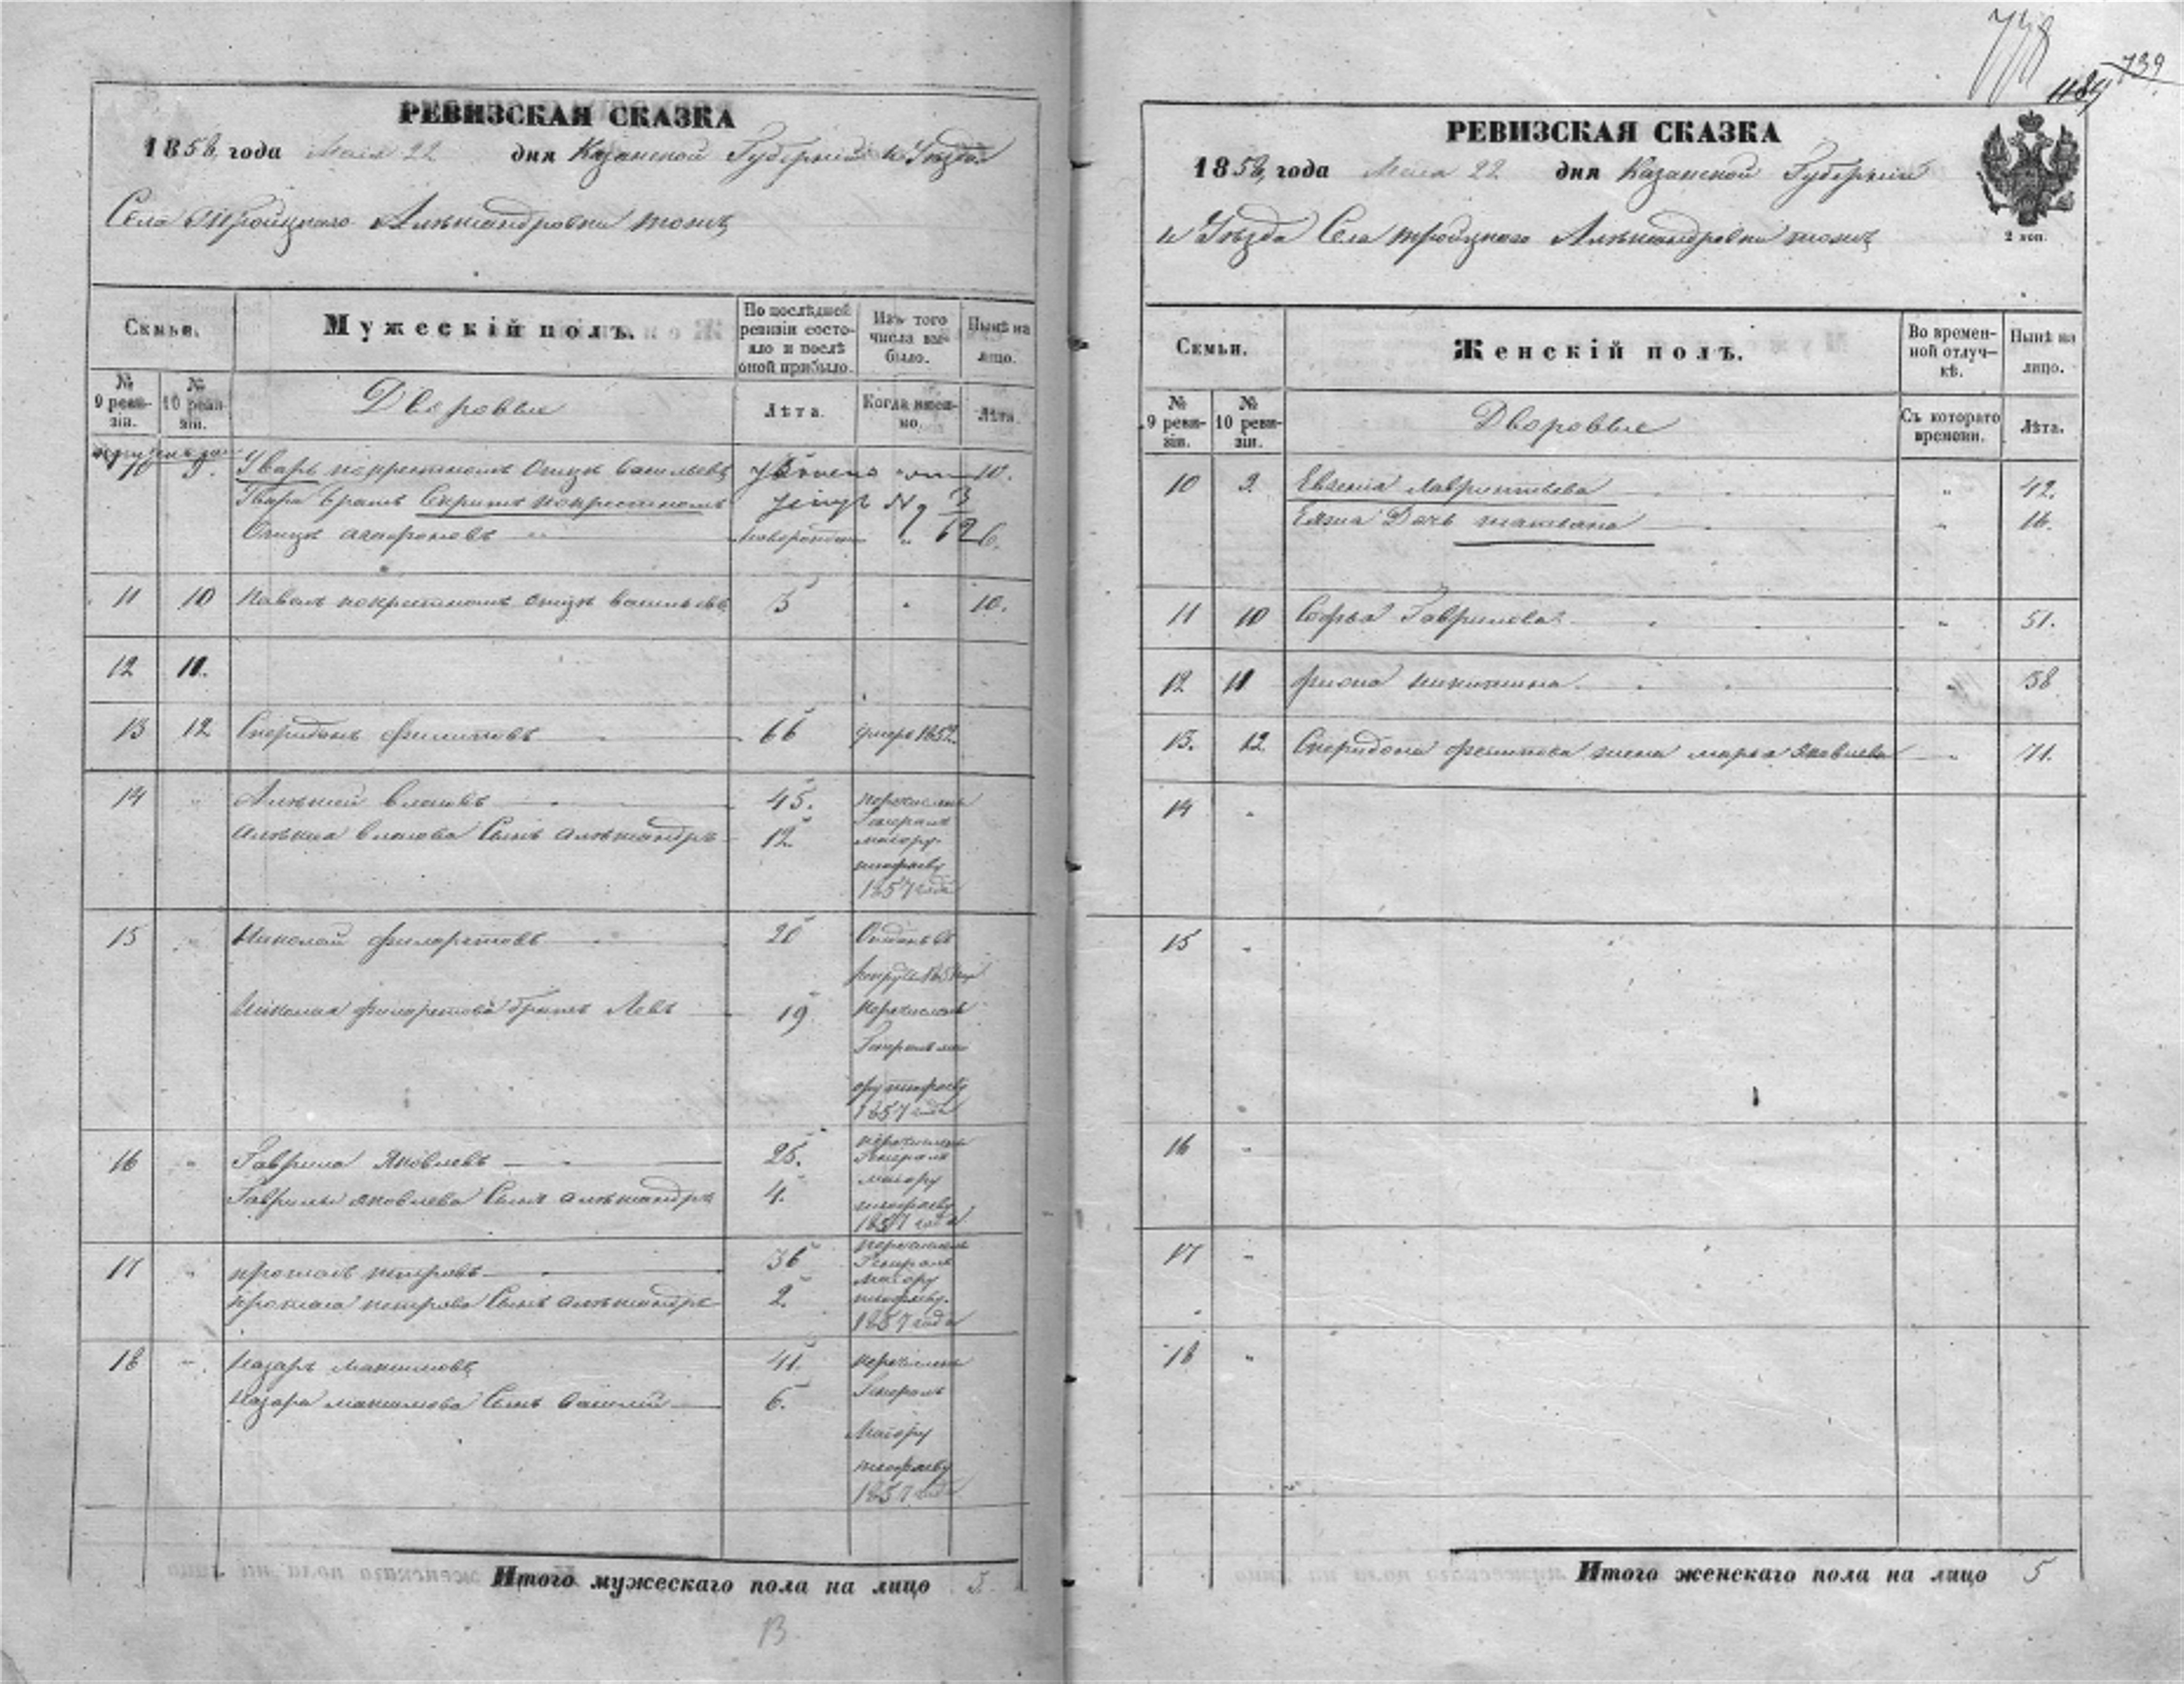 РЕВИЗСКАЯ СКАЗКА
1858 года Мая 22 дня Казанской Губерніи и Уѣзда
Села Троицкаго Александровка тожъ
Семьи.
Мужескій полъ.
По послѣдней ревизіи состояло и послѣ оной прибыло.
Изъ того числа выбыло.
Нынѣ на лицо.
№ 9 ревизіи.
№ 10 ревизіи.
Дворовые
Лѣта.
Когда именно.
Лѣта.
10 9. Уваръ по крестномъ отцѣ Васильевъ 10.
Увара братъ по крестномъ
Отцѣ 6.
11 10 Павелъ по крестномъ отцѣ Васильевъ 3 " 10.
12 11.
13 12 Спиридонъ Филиповъ 66 умеръ 1852.
14 " Алексей Власовъ 45. перечисленъ
Генералъ
Алексея Власова Сынъ Александръ 12 маіору
1857 года
15 " Николай Филаретовъ 20 Отданъ въ
рекруты
Николая Филаретова братъ Левъ 19 перечисленъ
Генералъ маі
ору
1857 года
16 " Гаврила Яковлевъ 25. перечисленъ
Генералъ
Гаврилы Яковлева Сынъ Александръ 4. маіору
1857 года
17 " Петровъ 36 перечисленъ
Генералъ
маіору
Петрова Сынъ Александръ 2.
1857 года
18 " Назаръ Максимовъ 41. перечисленъ
Назара Максимова Сынъ Василий 6. Генералъ
Маіору
1857 года
Итого мужескаго пола на лицо 3.
13
738
739
РЕВИЗСКАЯ СКАЗКА
1858, года Мая 22 дня Казанской Губерніи
и Уѣзда Села Троицкаго Александровка тожъ
2 коп.
Семьи.
Женскій полъ.
Во временной отлучкѣ.
Нынѣ на лицо.
№ 9 ревизіи.
№ 10 ревизіи.
Дворовые
Съ котораго времени.
Лѣта.
10 9. Евгенія Лаврентьева " 42.
Дочь Татьяна " 16.
11 10 Софья Гаврилова " 51.
12 11 Никитина " 58
13. 12 Спиридона Филипова жена Марья Яковлева " 71.
14 "
15 "
16 "
17 "
18 "
Итого женскаго пола на лицо 5